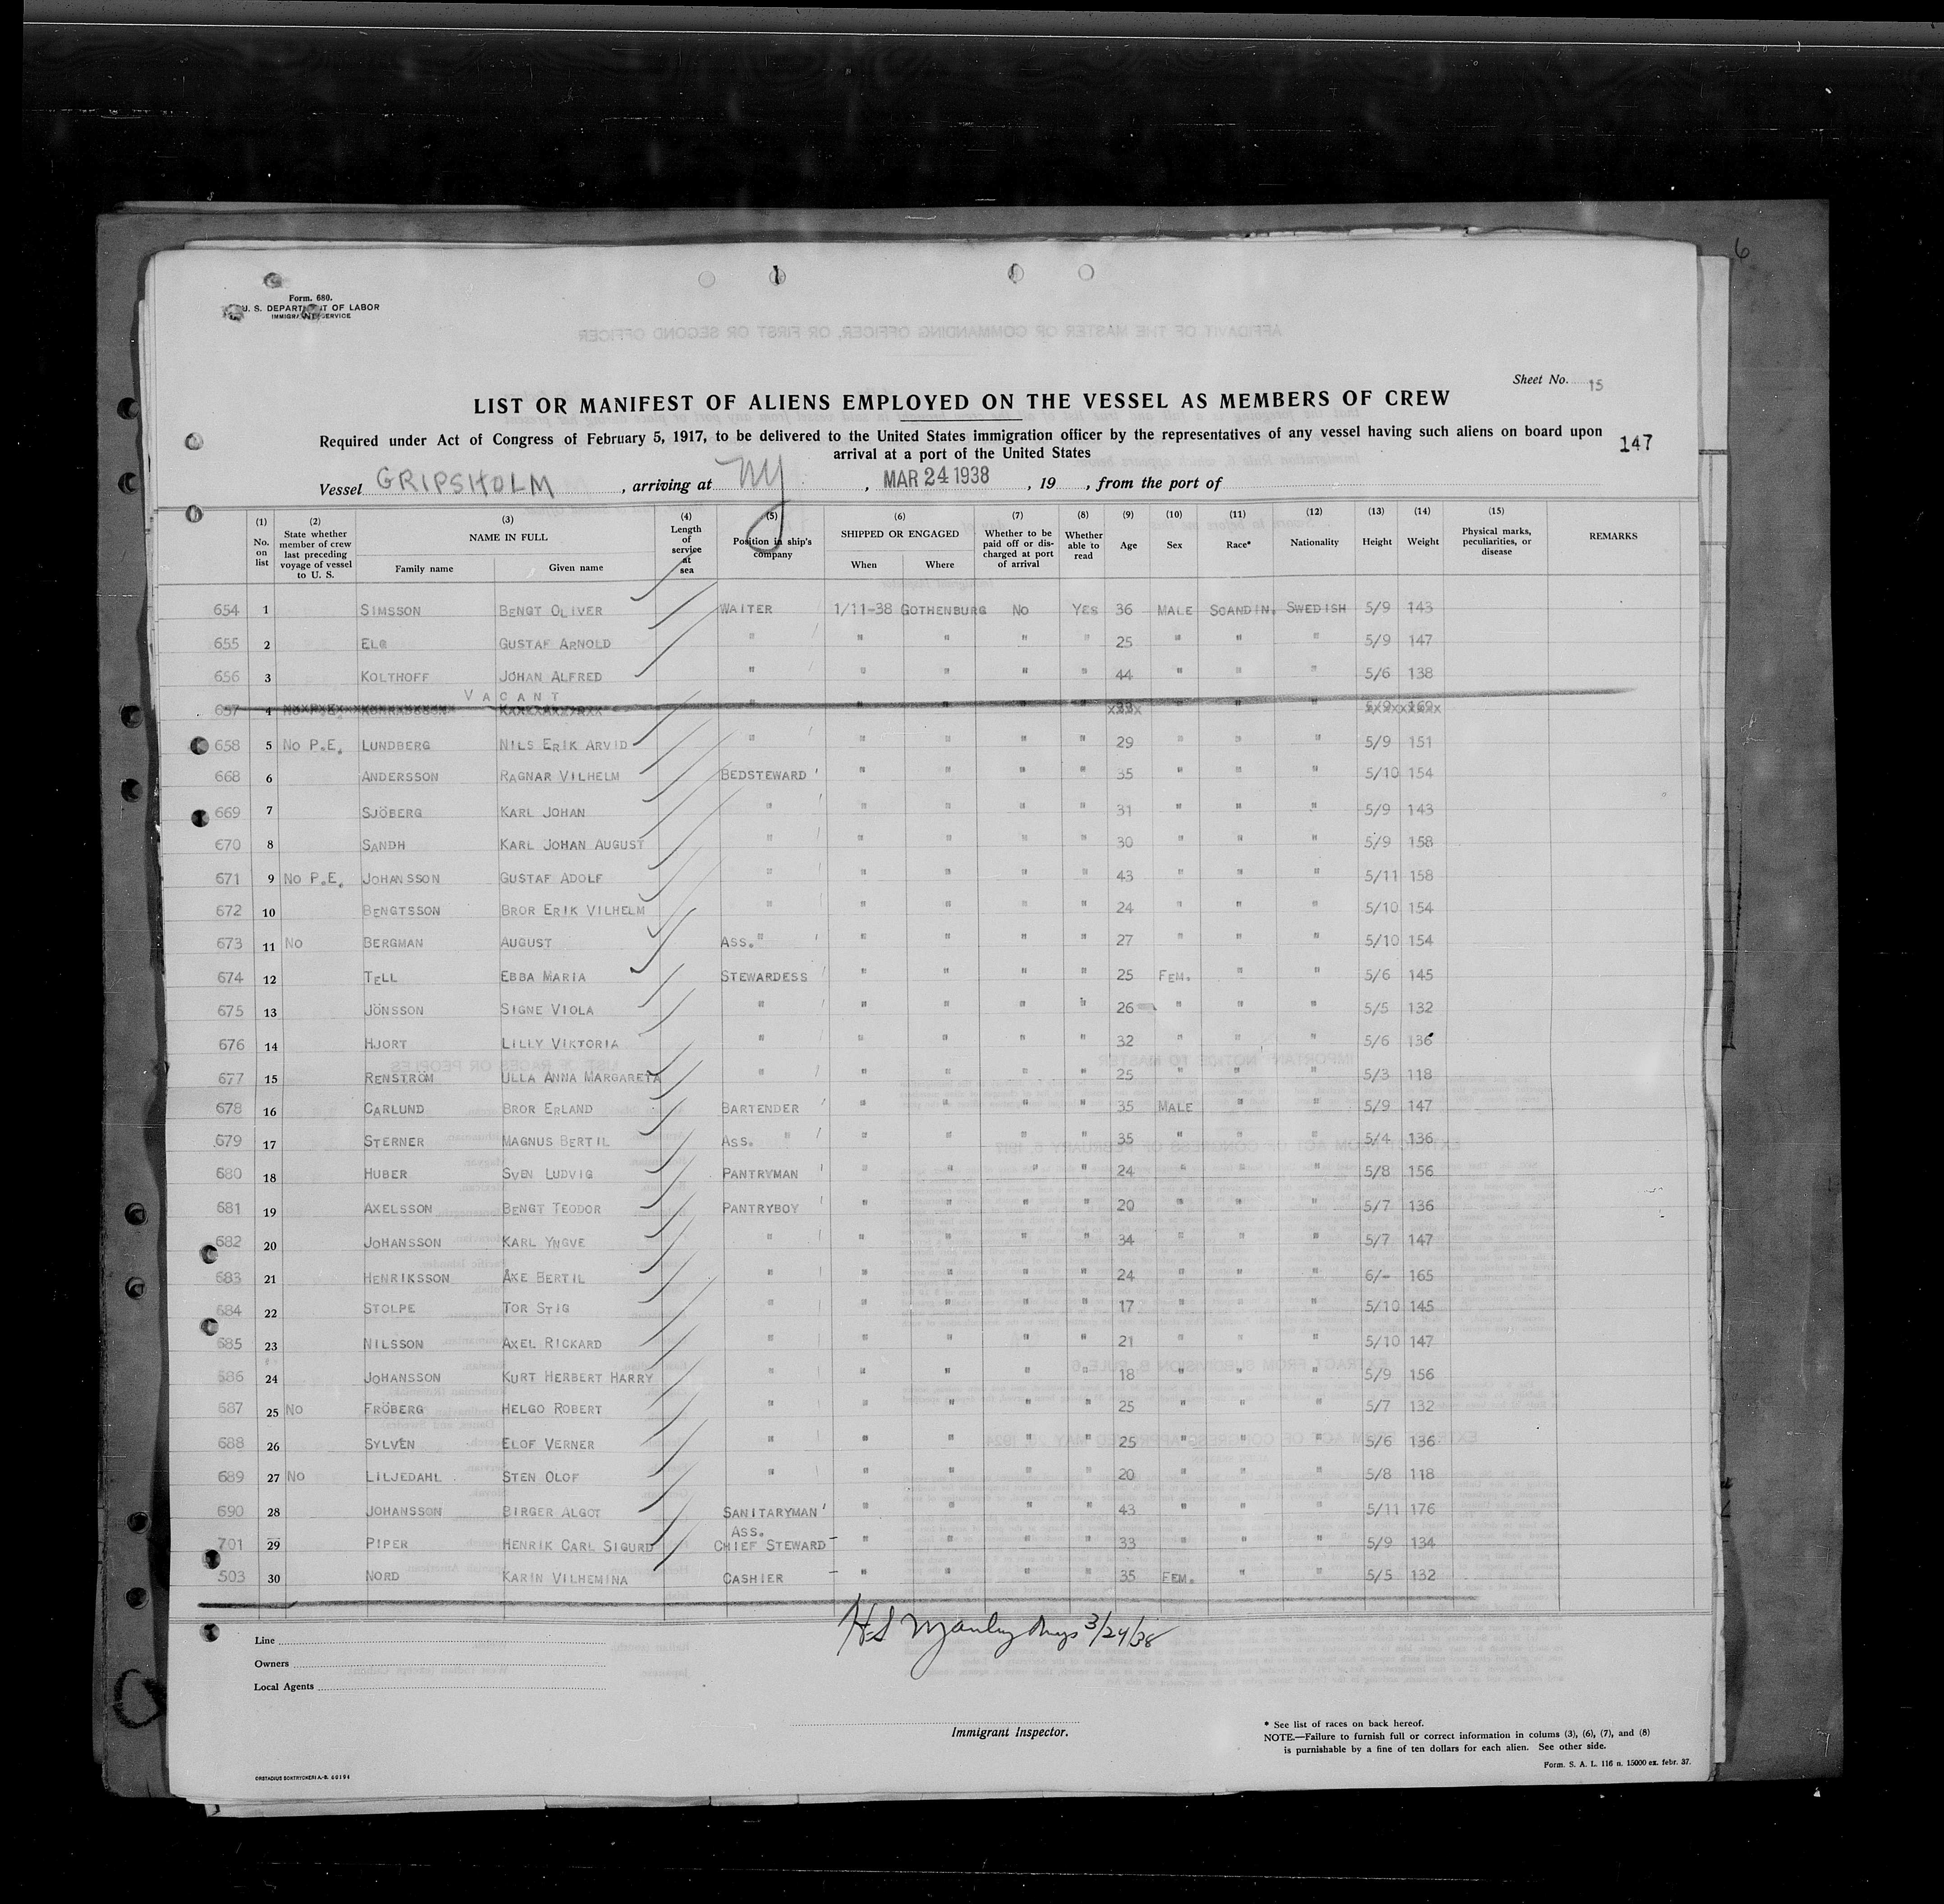 6
Form. 680.
U. S. DEPARTMENT OF LABOR
IMMIGRATION SERVICE
Sheet No. 15
LIST OR MANIFEST OF ALIENS EMPLOYED ON THE VESSEL AS MEMBERS OF CREW
Required under Act of Congress of February 5, 1917, to be delivered to the United States immigration officer by the representatives of any vessel having such aliens on board upon
arrival at a port of the United States
147
Vessel GRIPSHOLM , arriving at NY , MAR 24 1938 , 19 , from the port of
(1) No. on list (2) State whether member of crew last preceding voyage of vessel to U. S. (3) NAME IN FULL Family name Given name (4) Length of service at sea (5) Position in ship's company (6) SHIPPED OR ENGAGED When Where (7) Whether to be paid off or discharged at port of arrival (8) Whether able to read (9) Age (10) Sex (11) Race* (12) Nationality (13) Height (14) Weight (15) Physical marks, peculiarities, or disease REMARKS
654 1 SIMSSON BENGT OLIVER WAITER 1/11-38 GOTHENBURG No YES 36 MALE SCANDIN. SWEDISH 5/9 143
655 2 ELG GUSTAF ARNOLD " " " " " 25 " " " 5/9 147
656 3 KOLTHOFF JOHAN ALFRED " " " " " 44 " " " 5/6 138
VACANT
657 4 " " " " " " " "
658 5 No P.E. LUNDBERG NILS ERIK ARVID " " " " " 29 " " " 5/9 151
668 6 ANDERSSON RAGNAR VILHELM BEDSTEWARD " " " " 35 " " " 5/10 154
669 7 SJÖBERG KARL JOHAN " " " " " 31 " " " 5/9 143
670 8 SANDH KARL JOHAN AUGUST " " " " " 30 " " " 5/9 158
671 9 No P.E. JOHANSSON GUSTAF ADOLF " " " " " 43 " " " 5/11 158
672 10 BENGTSSON BROR ERIK VILHELM " " " " " 24 " " " 5/10 154
673 11 No BERGMAN AUGUST ASS. " " " " " 27 " " " 5/10 154
674 12 TELL EBBA MARIA STEWARDESS " " " " 25 FEM. " " 5/6 145
675 13 JÖNSSON SIGNE VIOLA " " " " " 26 " " " 5/5 132
676 14 HJORT LILLY VIKTORIA " " " " " 32 " " " 5/6 136
677 15 RENSTRÖM ULLA ANNA MARGARETA " " " " " 25 " " " 5/3 118
678 16 CARLUND BROR ERLAND BARTENDER " " " " 35 MALE " " 5/9 147
679 17 STERNER MAGNUS BERTIL ASS. " " " " " 35 " " " 5/4 136
680 18 HUBER SVEN LUDVIG PANTRYMAN " " " " 24 " " " 5/8 156
681 19 AXELSSON BENGT TEODOR PANTRYBOY " " " " 20 " " " 5/7 136
682 20 JOHANSSON KARL YNGVE " " " " " 34 " " " 5/7 147
683 21 HENRIKSSON ÅKE BERTIL " " " " " 24 " " " 6/- 165
684 22 STOLPE TOR STIG " " " " " 17 " " " 5/10 145
685 23 NILSSON AXEL RICKARD " " " " " 21 " " " 5/10 147
686 24 JOHANSSON KURT HERBERT HARRY " " " " " 18 " " " 5/9 156
687 25 No FRÖBERG HELGO ROBERT " " " " " 25 " " " 5/7 132
688 26 SYLVÉN ELOF VERNER " " " " " 25 " " " 5/6 136
689 27 No LILJEDAHL STEN OLOF " " " " " 20 " " " 5/8 118
690 28 JOHANSSON BIRGER ALGOT SANITARYMAN " " " " 43 " " " 5/11 176
701 29 PIPER HENRIK CARL SIGURD ASS. CHIEF STEWARD " " " " 33 " " " 5/9 134
503 30 NORD KARIN VILHEMINA CASHIER " " " " 35 FEM. " " 5/5 132
3/24/38
Line
Owners
Local Agents
Immigrant Inspector.
* See list of races on back hereof.
NOTE.—Failure to furnish full or correct information in colums (3), (6), (7), and (8)
is purnishable by a fine of ten dollars for each alien. See other side.
Form. S. A. L. 116 n. 15000 ex. febr. 37.